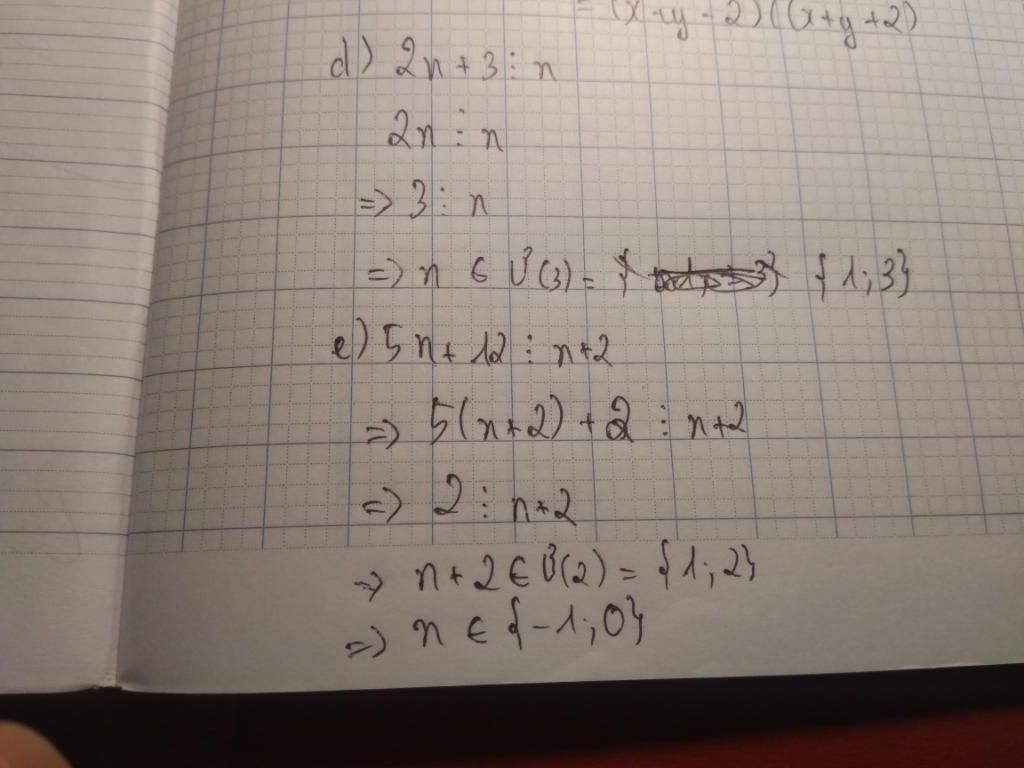 = (x+y-2)((x+y+2)
d) 2n+3⋮n
2n⋮n
=> 3⋮n
=> n ∈ Ư(3) = { {1;3}
e) 5n+12⋮n+2
=> 5(n+2)+2⋮n+2
=> 2⋮n+2
=> n+2∈Ư(2) = {1;2}
=> n ∈ {-1;0}